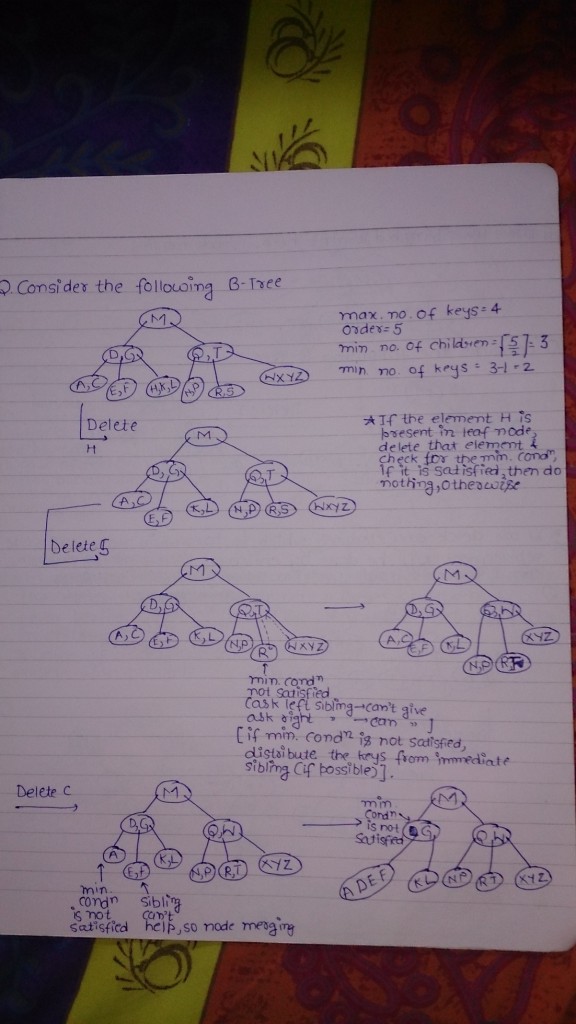 Q. Consider the following B-Tree
M
D,G
Q,T
A,C
E,F
H,K,L
N,P
R,S
WXYZ
max. no. of keys=4
order=5
min no. of children=⌈5/2⌉=3
min no. of keys = 3-1=2
Delete
H
M
D,G
Q,T
A,C
E,F
K,L
N,P
R,S
WXYZ
*If the element H is
present in leaf node,
delete that element &
check for the min. condn,
if it is satisfied, then do
nothing, otherwise
Delete S
M
D,G
Q,T
A,C
E,F
K,L
N,P
R
WXYZ
→
M
D,G
Q,W
A,C
E,F
K,L
N,P
R,T
XYZ
min. condn
not satisfied
(ask left sibling→can't give
ask right " →can "]
[if min. condn is not satisfied,
distribute the keys from immediate
sibling (if possible)].
Delete C
M
D,G
Q,W
A
E,F
K,L
N,P
R,T
XYZ
min.
condn
is not
satisfied
sibling
can't
help, so node merging
min
condn
is not
satisfied
M
G
Q,W
ADEF
KL
NP
RT
XYZ